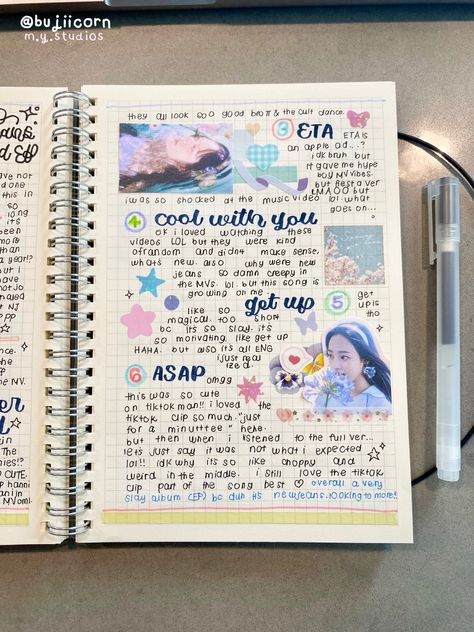 @bujiicorn
m.y.studios
they all look soo good bro!! & the cult dance.
③ ETA
ETA is
an apple ad...?
idk bruh but
it gave me hype
boy MV vibes.
but fiesta ver
LMAOO but
i was so shocked at the music video lol. what
goes on...
④ cool with you
ok i loved watching these
videos LOL but they were kind
of random and didnt make sense.
whats new. also why were new
jeans so damn creepy in
the MVs. lol. but this song is
growing on me
get up ⑤
get
up is
tho
like so
magical. too short
bc its so slay. its
so motivating. like get up
HAHA. but also its all ENG
i just real
ized.
⑥ ASAP
omgg
this was so cute
on tiktok man!! i loved the
tiktok clip so much "just
for a minutttee" hehe.
but then when i listened to the full ver...
let's just say it was not what i expected
lol!! idk why its so like choppy and
weird in the middle. i still love the tiktok
clip part of the song best ♡ overall a very
slay album (EP) bc duh its newjeans. looking to more!
ave not
done
this in
so
long
its
been
more
than
a year!?
and
but i
have
not jo
urnaled
about
NJ